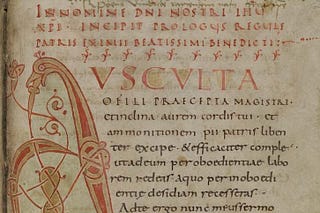 IN NOMINE DNI NOSTRI IHU
XPI · INCIPIT PROLOGUS REGULE
PATRIS EXIMII BEATISSIMI BENEDICTI:
AUSCULTA
O FILI PRAECEPTA magistri ·
et inclina aurem cordis tui · et
ammonitionem pii patris liben
ter excipe · & efficaciter comple ·
ut ad eum per oboedientiae labo
rem redeas a quo per inobedi
entiae desidiam recesseras ·
Ad te ergo nunc meus sermo